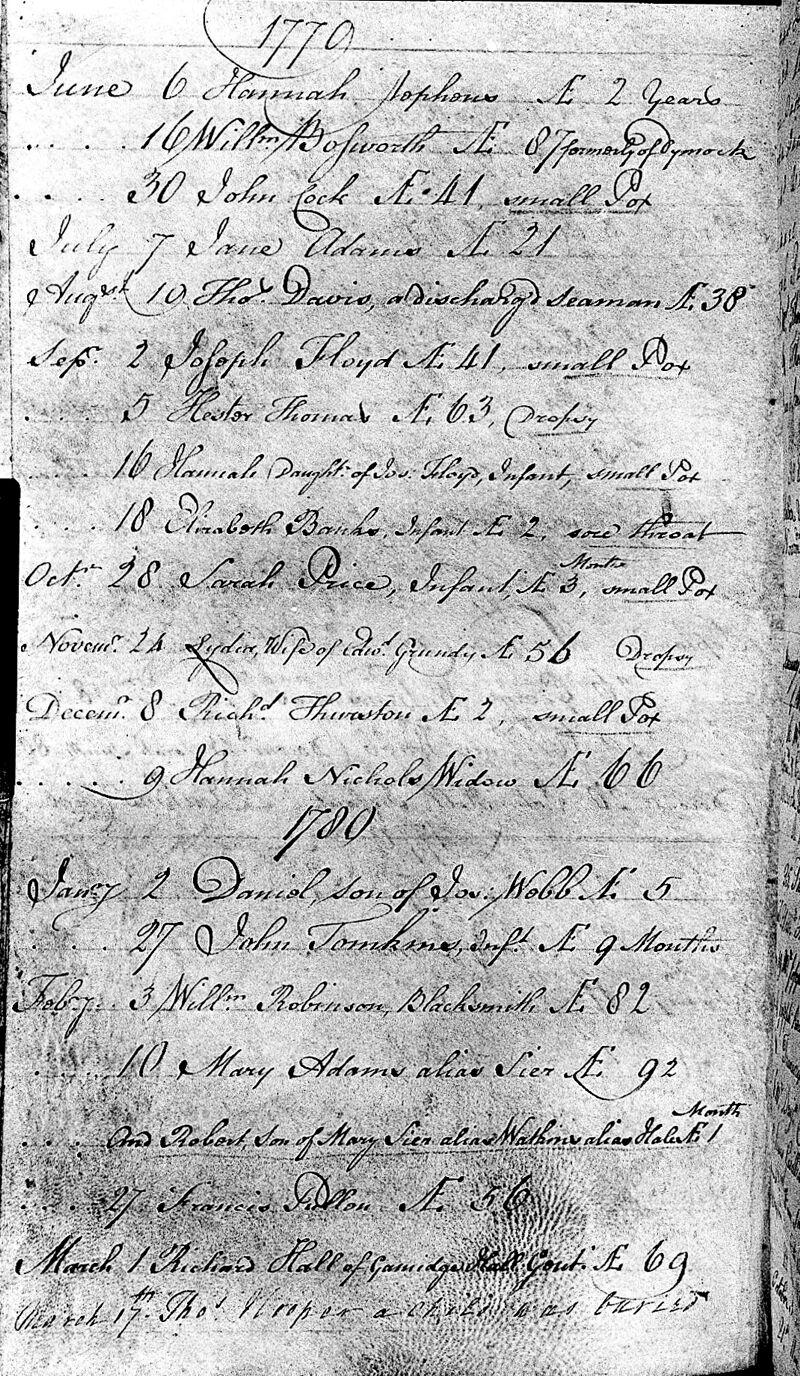 1770
June 6 Hannah Stephens Æ 2 Years
.... 16 Willm Bosworth Æ 87 formerly of Dymock
.... 30 John Cock Æ 41, small Pox
July 7 Jane Adams Æ 21
Augst 10 Thos Davis, a discharg'd seaman Æ 38
Sepr. 2 Joseph Floyd Æ 41, small Pox
.... 5 Hester Thomas Æ 63, Dropsy
.... 16 Hannah Daughtr. of Jos: Floyd, Infant, small Pox
.... 18 Elizabeth Banks, Infant Æ 2, sore throat
Octr. 28 Sarah Price, Infant, Æ 3 Months, small Pox
Novemr. 24 Lydia, Wife of Edwd. Grundy Æ 56 Dropsy
Decemr. 8 Richd. Thurston Æ 2, small Pox
.... 9 Hannah Nichols Widow Æ 66
1780
Janry 2 Daniel, son of Jos: Webb Æ 5
.... 27 John Tomkins, Inft. Æ 9 Months
Febry. 3 Willm Robinson, Blacksmith Æ 82
.... 10 Mary Adams alias Sier Æ 92
.... And Robert, son of Mary Sier alias Watkins alias Hale Æ 1 Month
.... 27 Francis Pullen Æ 56
March 1 Richard Hall of Hall Gent: Æ 69
March 17th. Thos Hooper a child was buried